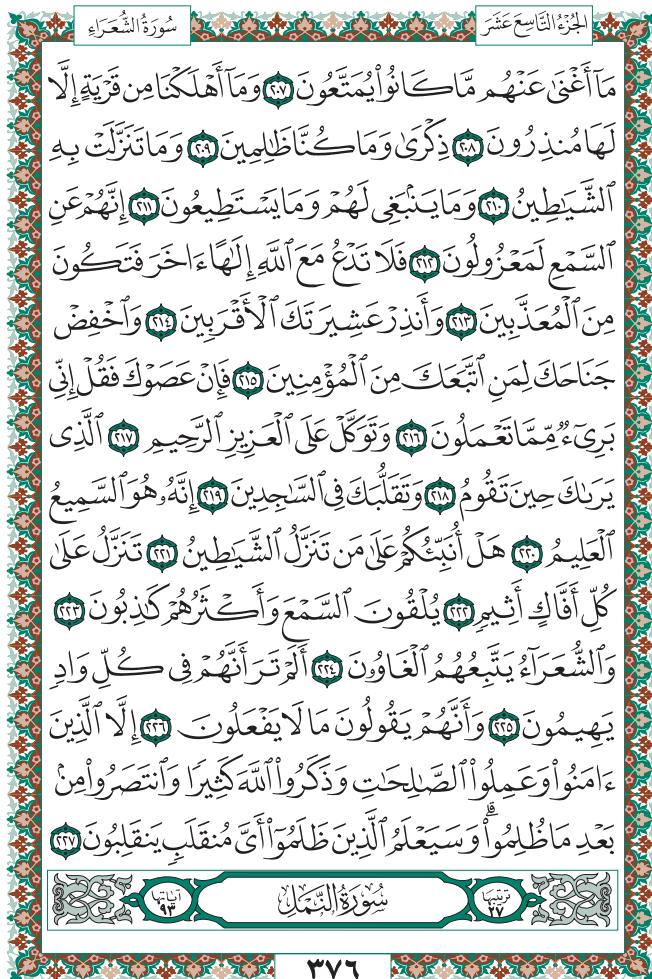 سُورَةُ الشُّعَرَاءِ
الجُزْءُ التَّاسِعَ عَشَرَ
مَآ أَغْنَىٰ عَنْهُم مَّا كَانُوا۟ يُمَتَّعُونَ ٢٠٧ وَمَآ أَهْلَكْنَا مِن قَرْيَةٍ إِلَّا
لَهَا مُنذِرُونَ ٢٠٨ ذِكْرَىٰ وَمَا كُنَّا ظَٰلِمِينَ ٢٠٩ وَمَا تَنَزَّلَتْ بِهِ
ٱلشَّيَٰطِينُ ٢١٠ وَمَا يَنۢبَغِى لَهُمْ وَمَا يَسْتَطِيعُونَ ٢١١ إِنَّهُمْ عَنِ
ٱلسَّمْعِ لَمَعْزُولُونَ ٢١٢ فَلَا تَدْعُ مَعَ ٱللَّهِ إِلَٰهًا ءَاخَرَ فَتَكُونَ
مِنَ ٱلْمُعَذَّبِينَ ٢١٣ وَأَنذِرْ عَشِيرَتَكَ ٱلْأَقْرَبِينَ ٢١٤ وَٱخْفِضْ
جَنَاحَكَ لِمَنِ ٱتَّبَعَكَ مِنَ ٱلْمُؤْمِنِينَ ٢١٥ فَإِنْ عَصَوْكَ فَقُلْ إِنِّى
بَرِىٓءٌ مِّمَّا تَعْمَلُونَ ٢١٦ وَتَوَكَّلْ عَلَى ٱلْعَزِيزِ ٱلرَّحِيمِ ٢١٧ ٱلَّذِى
يَرَىٰكَ حِينَ تَقُومُ ٢١٨ وَتَقَلُّبَكَ فِى ٱلسَّٰجِدِينَ ٢١٩ إِنَّهُۥ هُوَ ٱلسَّمِيعُ
ٱلْعَلِيمُ ٢٢٠ هَلْ أُنَبِّئُكُمْ عَلَىٰ مَن تَنَزَّلُ ٱلشَّيَٰطِينُ ٢٢١ تَنَزَّلُ عَلَىٰ
كُلِّ أَفَّاكٍ أَثِيمٍ ٢٢٢ يُلْقُونَ ٱلسَّمْعَ وَأَكْثَرُهُمْ كَٰذِبُونَ ٢٢٣
وَٱلشُّعَرَآءُ يَتَّبِعُهُمُ ٱلْغَاوُۥنَ ٢٢٤ أَلَمْ تَرَ أَنَّهُمْ فِى كُلِّ وَادٍ
يَهِيمُونَ ٢٢٥ وَأَنَّهُمْ يَقُولُونَ مَا لَا يَفْعَلُونَ ٢٢٦ إِلَّا ٱلَّذِينَ
ءَامَنُوا۟ وَعَمِلُوا۟ ٱلصَّٰلِحَٰتِ وَذَكَرُوا۟ ٱللَّهَ كَثِيرًا وَٱنتَصَرُوا۟ مِنۢ
بَعْدِ مَا ظُلِمُوا۟ ۗ وَسَيَعْلَمُ ٱلَّذِينَ ظَلَمُوٓا۟ أَىَّ مُنقَلَبٍ يَنقَلِبُونَ ٢٢٧
ترتيبها ٢٧
سُورَةُ النَّمْلِ
آياتها ٩٣
٣٧٦